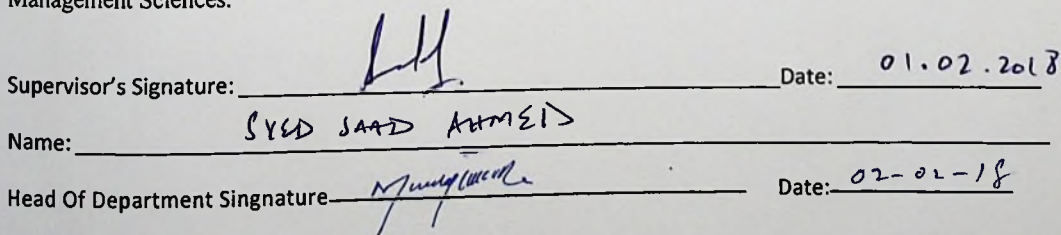 Management Sciences.
Supervisor's Signature: Date: 01.02.2018
Name: SYED SAAD AHMED
Head Of Department Singnature Date: 02-02-18